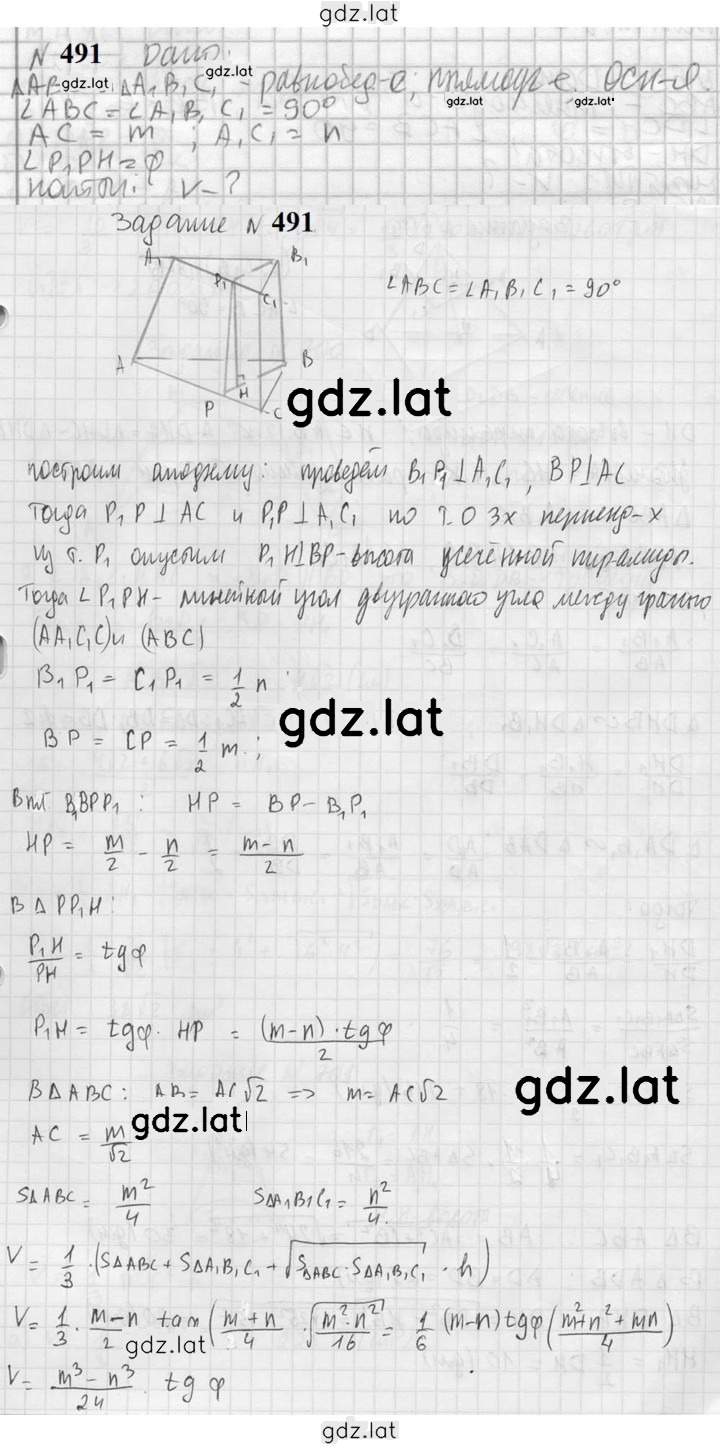 gdz.lat
N 491 Дано:
△AB gdz.lat △A₁B₁C₁ gdz.lat - равнобед-е; прямоуг-е gdz.lat осн-я. gdz.lat
∠ABC = ∠A₁B₁C₁ = 90°
AC = m ; A₁C₁ = n
∠P₁PH = φ
найти: V - ?
Задание N 491
A₁ B₁
P₁ C₁
∠ABC = ∠A₁B₁C₁ = 90°
A B
H
P C
gdz.lat
построим апофему: проведём B₁P₁⊥A₁C₁, BP⊥AC
Тогда P₁P⊥AC и P₁P⊥A₁C₁ по т. о 3х перпенд-х
Из т. P₁ опустим P₁H⊥BP - высота усечённой пирамиды.
Тогда ∠P₁PH - линейный угол двугранного угла между гранью
(AA₁C₁C) и (ABC)
B₁P₁ = C₁P₁ = 1/2 n
gdz.lat
BP = CP = 1/2 m.;
В пл B₁BPP₁: HP = BP - B₁P₁
HP = m/2 - n/2 = (m-n)/2
В △PP₁H:
P₁H/PH = tgφ
P₁H = tgφ · HP = (m-n)·tgφ/2
В △ABC: AB = AC√2 => m = AC√2
gdz.lat
AC = m/√2
gdz.lat
S△ABC = m²/4 S△A₁B₁C₁ = n²/4.
V = 1/3 · (S△ABC + S△A₁B₁C₁ + √(S△ABC · S△A₁B₁C₁) · h)
V = 1/3 · (m-n)/2 tan ((m+n)/4 · √(m²·n²/16) = 1/6 (m-n) tgφ ((m²+n²+mn)/4)
gdz.lat
V = (m³-n³)/24 · tg φ
gdz.lat